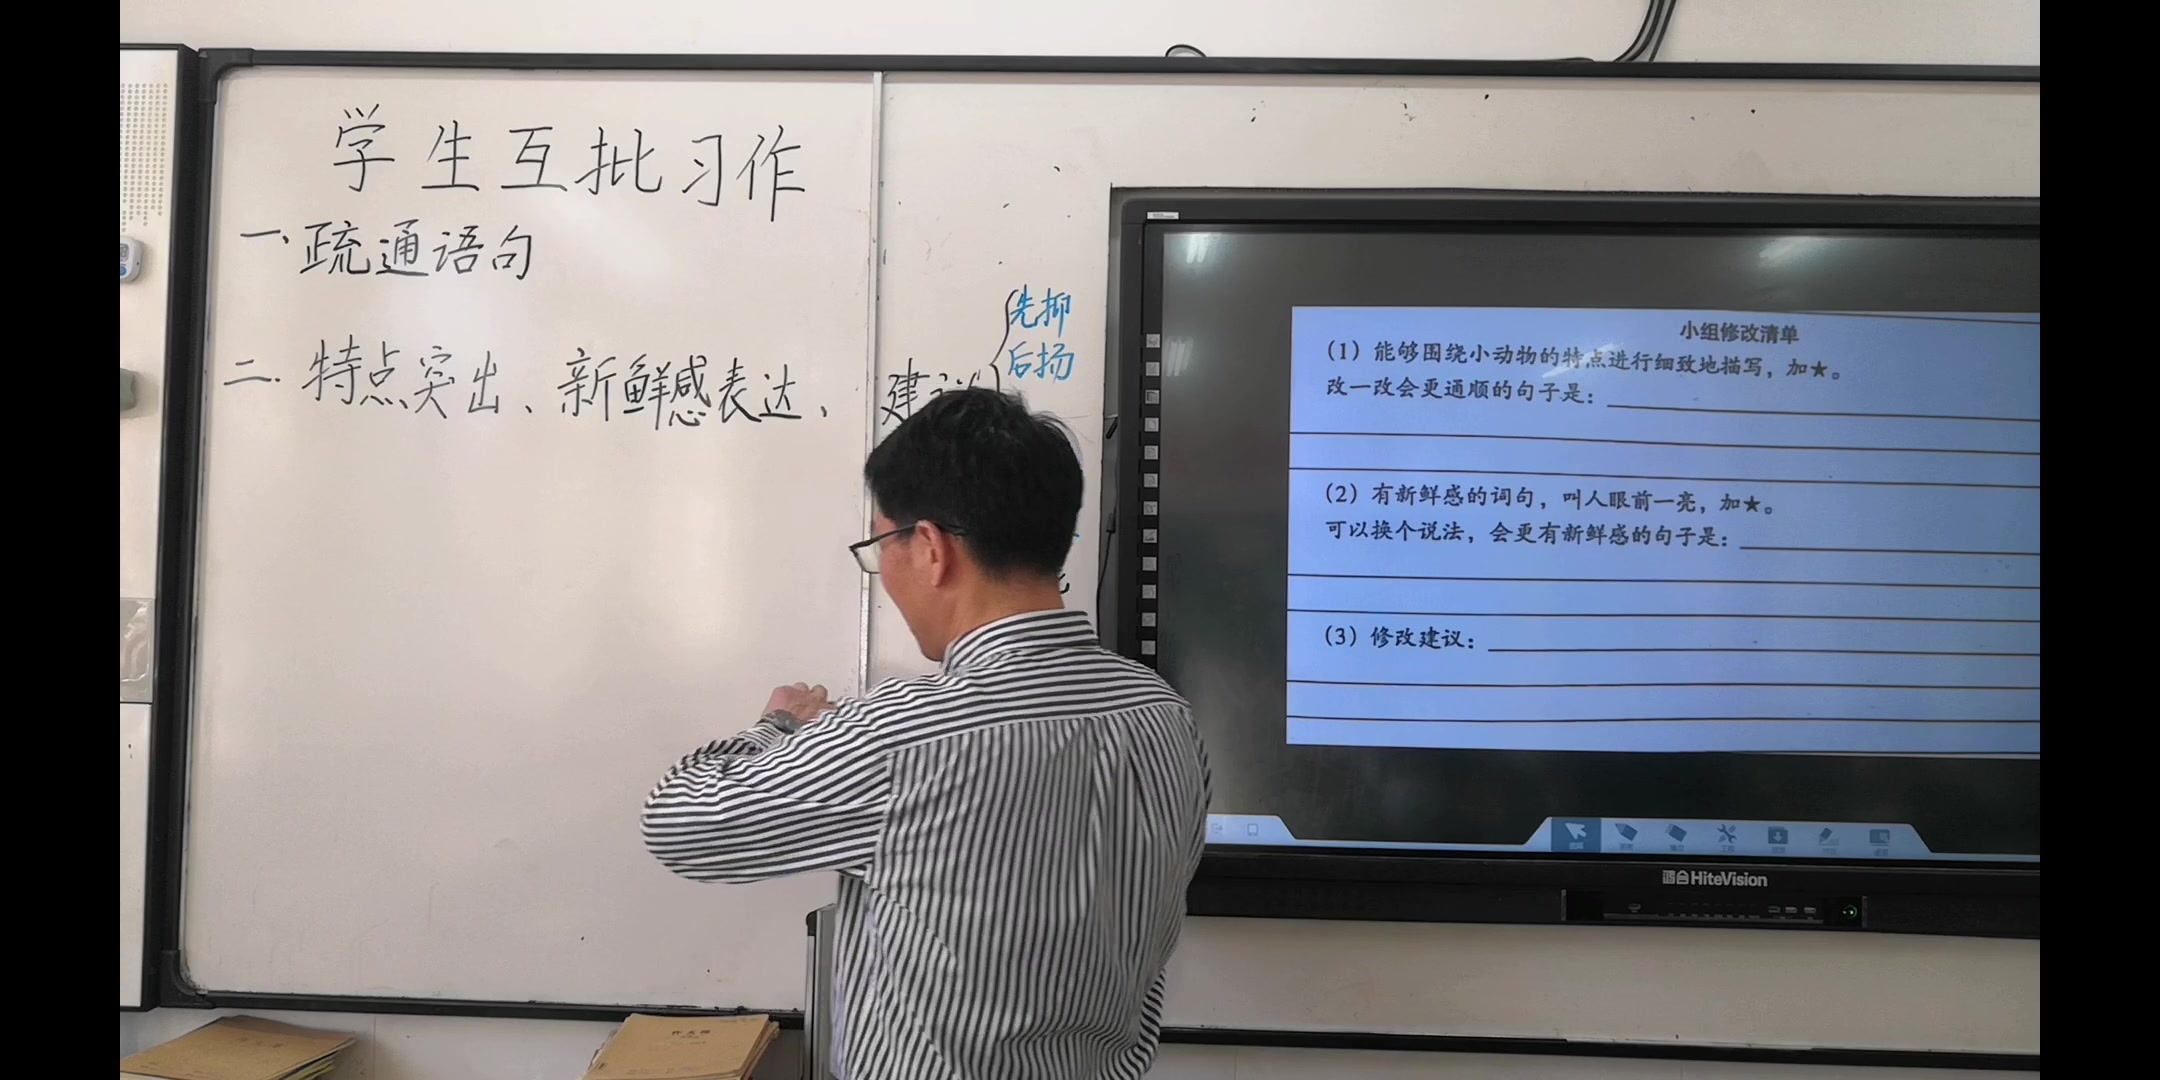 学生互批习作
一、疏通语句
二.特点突出、新鲜感表达、建议
先抑
后扬
小组修改清单
（1）能够围绕小动物的特点进行细致地描写，加★。
改一改会更通顺的句子是：
（2）有新鲜感的词句，叫人眼前一亮，加★。
可以换个说法，会更有新鲜感的句子是：
（3）修改建议：
HiteVision
作文簿